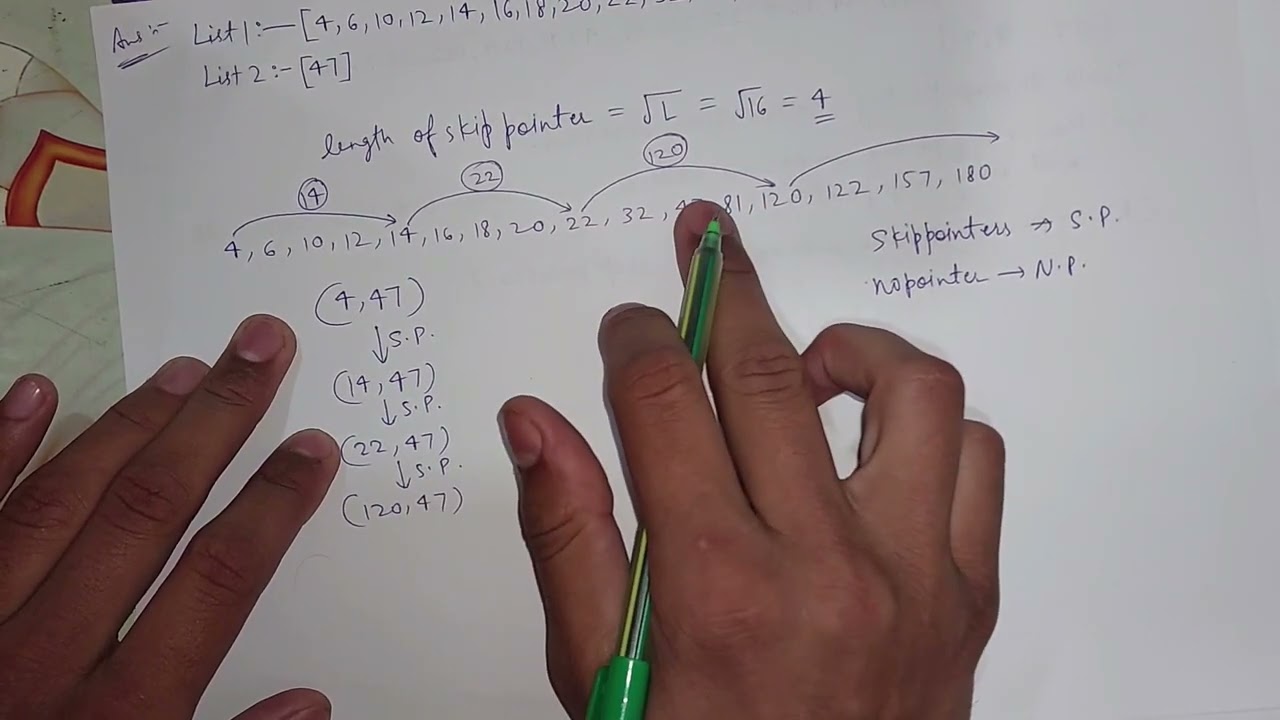 Ans:- List 1:— [4, 6, 10, 12, 14, 16, 18, 20, 22, 32,
List 2:- [47]
length of skip pointer = √L = √16 = 4
14 22 120
4, 6, 10, 12, 14, 16, 18, 20, 22, 32, 81, 120, 122, 157, 180
Skippointers → S.P.
nopointer → N.P.
(4, 47)
↓ S.P.
(14, 47)
↓ S.P.
(22, 47)
↓ S.P.
(120, 47)